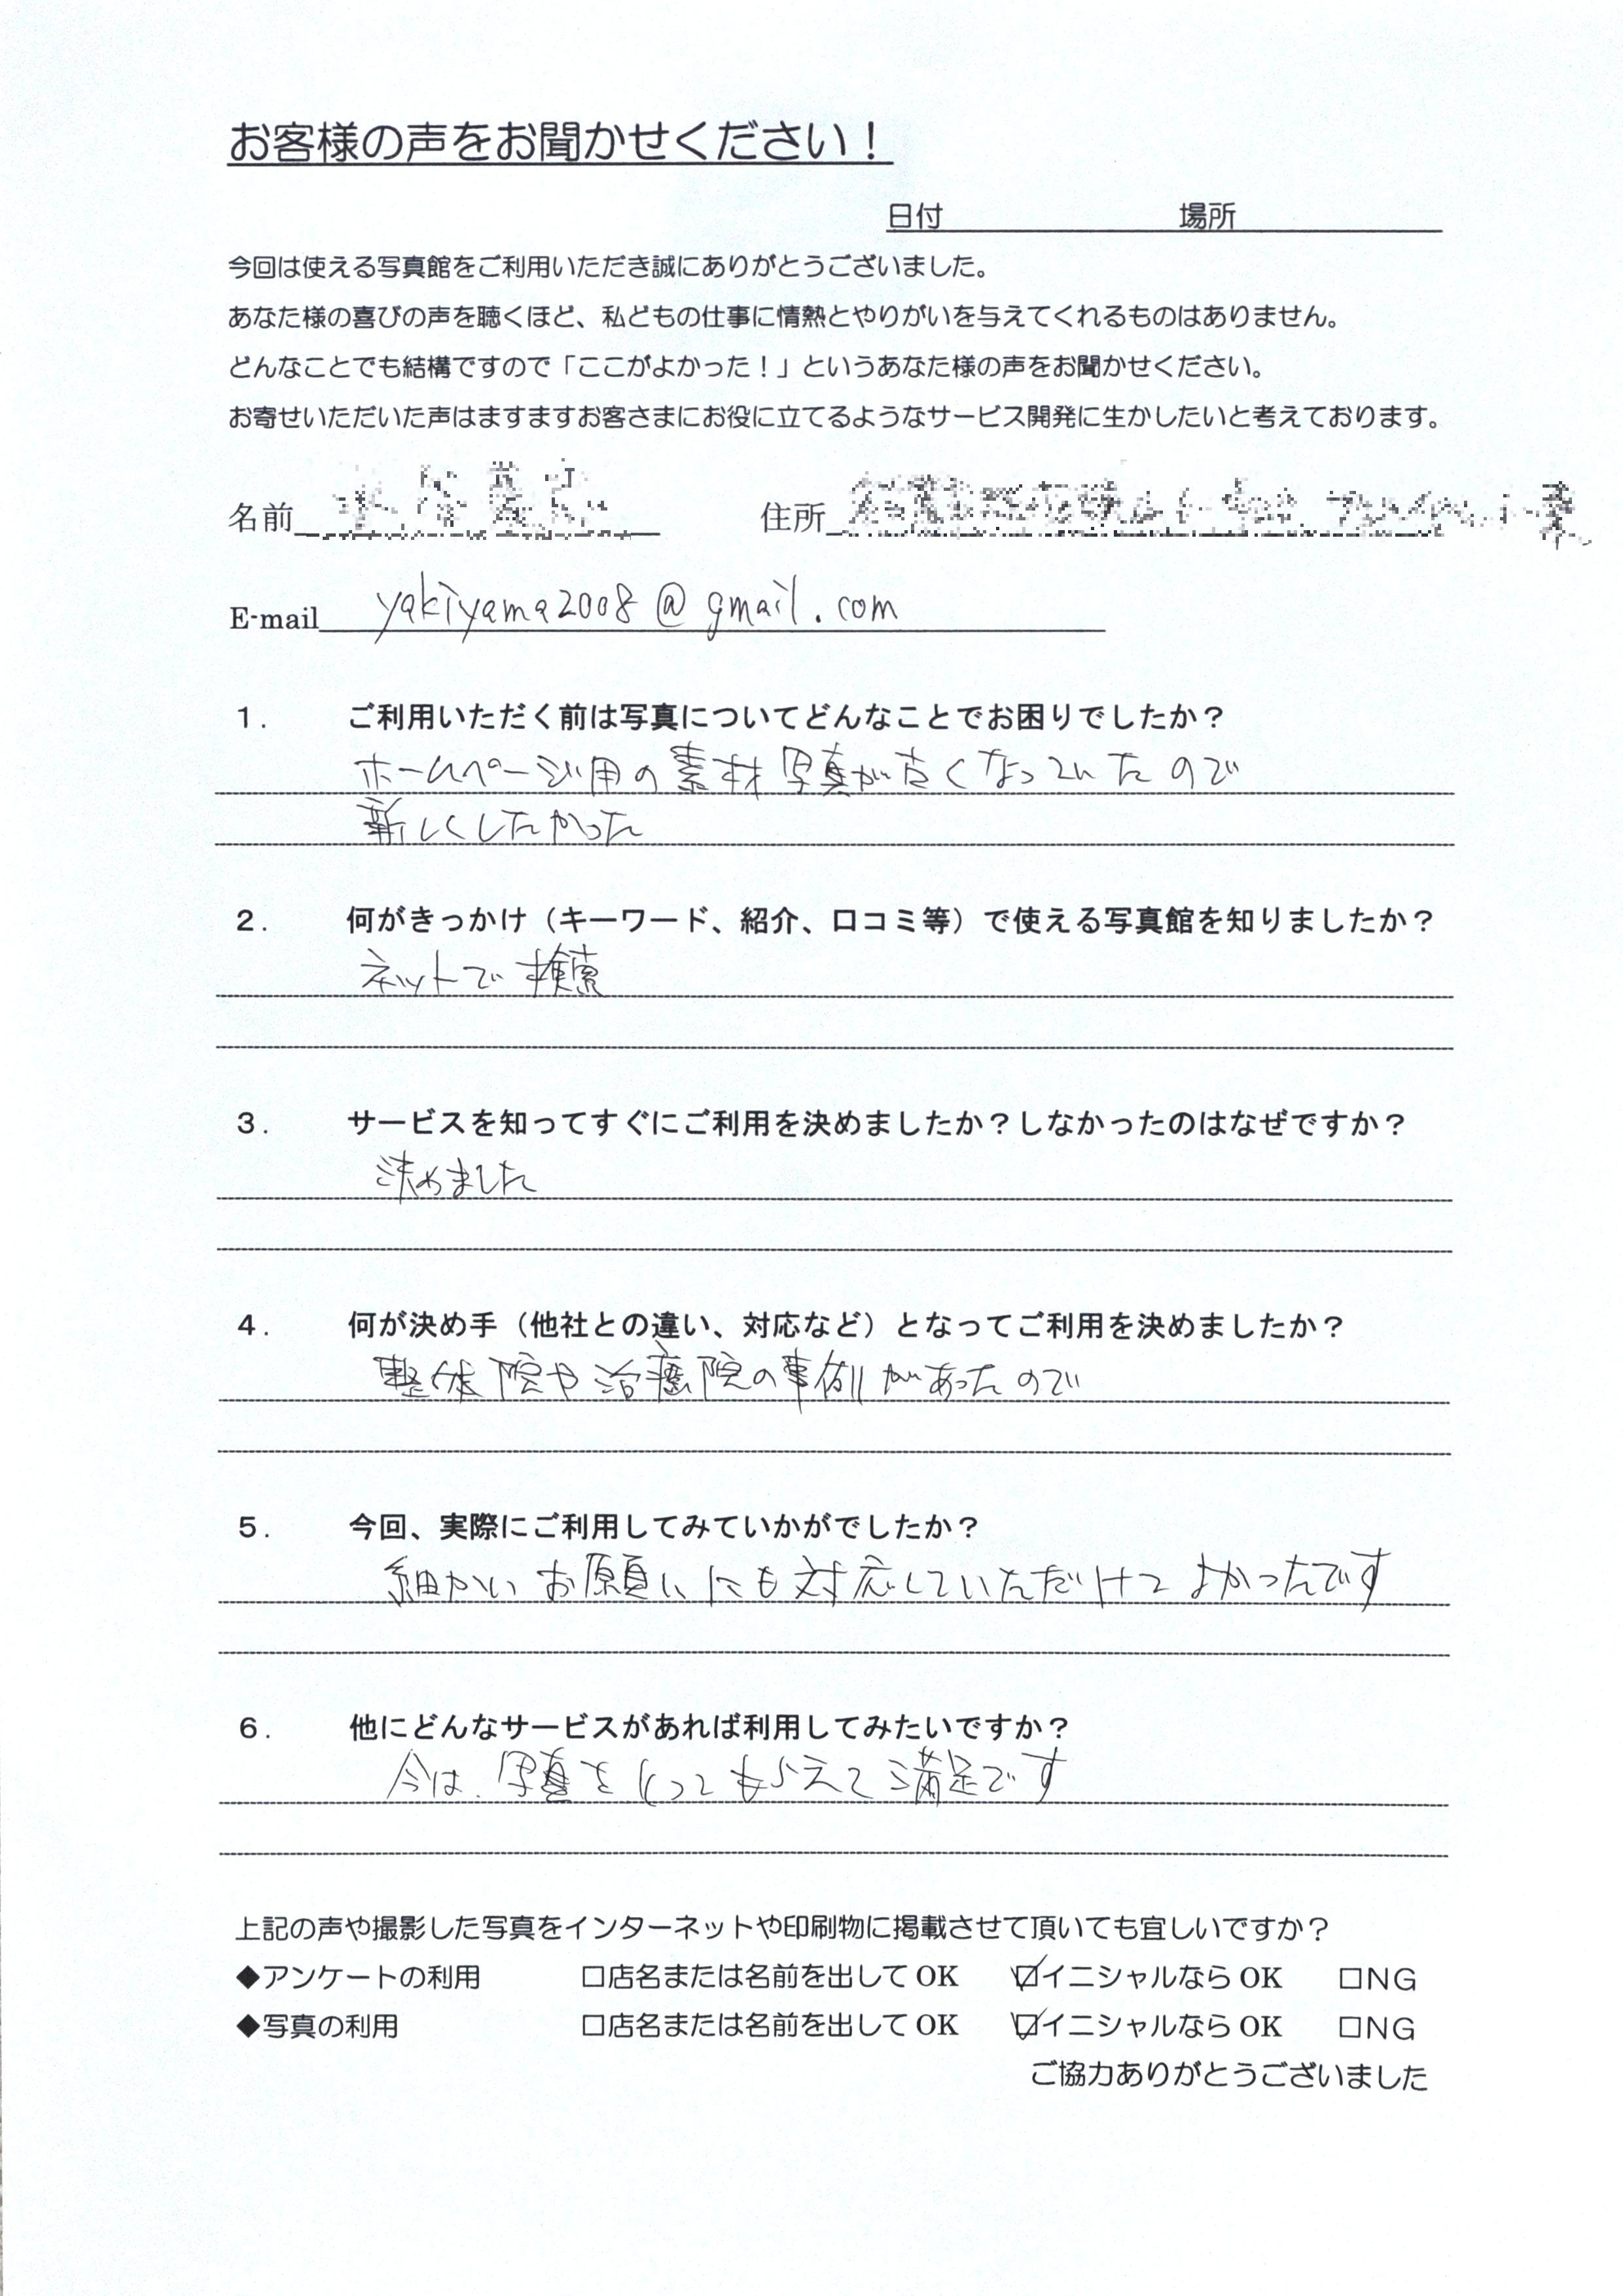 お客様の声をお聞かせください！
日付 場所
今回は使える写真館をご利用いただき誠にありがとうございました。
あなた様の喜びの声を聴くほど、私どもの仕事に情熱とやりがいを与えてくれるものはありません。
どんなことでも結構ですので「ここがよかった！」というあなた様の声をお聞かせください。
お寄せいただいた声はますますお客さまにお役に立てるようなサービス開発に生かしたいと考えております。
名前 住所
E-mail yakiyama2008@gmail.com
1. ご利用いただく前は写真についてどんなことでお困りでしたか？
ホームページ用の素材写真が古くなっていたので
新しくしたかった
2. 何がきっかけ（キーワード、紹介、口コミ等）で使える写真館を知りましたか？
ネットで検索
3. サービスを知ってすぐにご利用を決めましたか？しなかったのはなぜですか？
決めました
4. 何が決め手（他社との違い、対応など）となってご利用を決めましたか？
整体院や治療院の事例があったので
5. 今回、実際にご利用してみていかがでしたか？
細かいお願いにも対応していただけてよかったです
6. 他にどんなサービスがあれば利用してみたいですか？
今は、写真をとってもらえて満足です
上記の声や撮影した写真をインターネットや印刷物に掲載させて頂いても宜しいですか？
◆アンケートの利用 □店名または名前を出して OK ☑イニシャルなら OK □NG
◆写真の利用 □店名または名前を出して OK ☑イニシャルなら OK □NG
ご協力ありがとうございました